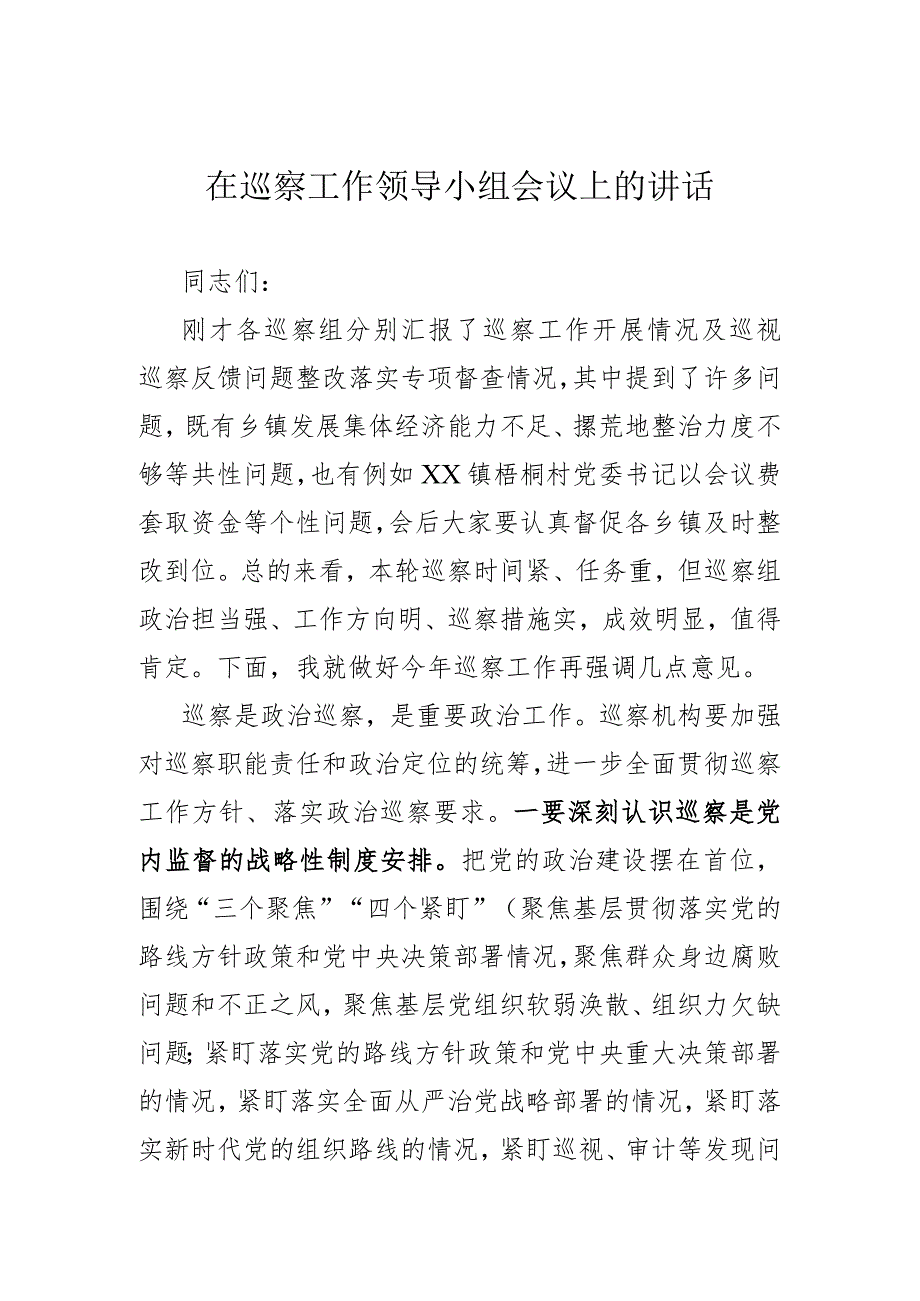 在巡察工作领导小组会议上的讲话
同志们：
刚才各巡察组分别汇报了巡察工作开展情况及巡视
巡察反馈问题整改落实专项督查情况，其中提到了许多问
题，既有乡镇发展集体经济能力不足、摞荒地整治力度不
够等共性问题，也有例如 XX 镇梧桐村党委书记以会议费
套取资金等个性问题，会后大家要认真督促各乡镇及时整
改到位。总的来看，本轮巡察时间紧、任务重，但巡察组
政治担当强、工作方向明、巡察措施实，成效明显，值得
肯定。下面，我就做好今年巡察工作再强调几点意见。
巡察是政治巡察，是重要政治工作。巡察机构要加强
对巡察职能责任和政治定位的统筹，进一步全面贯彻巡察
工作方针、落实政治巡察要求。一要深刻认识巡察是党
内监督的战略性制度安排。把党的政治建设摆在首位，
围绕“三个聚焦”“四个紧盯”（聚焦基层贯彻落实党的
路线方针政策和党中央决策部署情况，聚焦群众身边腐败
问题和不正之风，聚焦基层党组织软弱涣散、组织力欠缺
问题；紧盯落实党的路线方针政策和党中央重大决策部署
的情况，紧盯落实全面从严治党战略部署的情况，紧盯落
实新时代党的组织路线的情况，紧盯巡视、审计等发现问